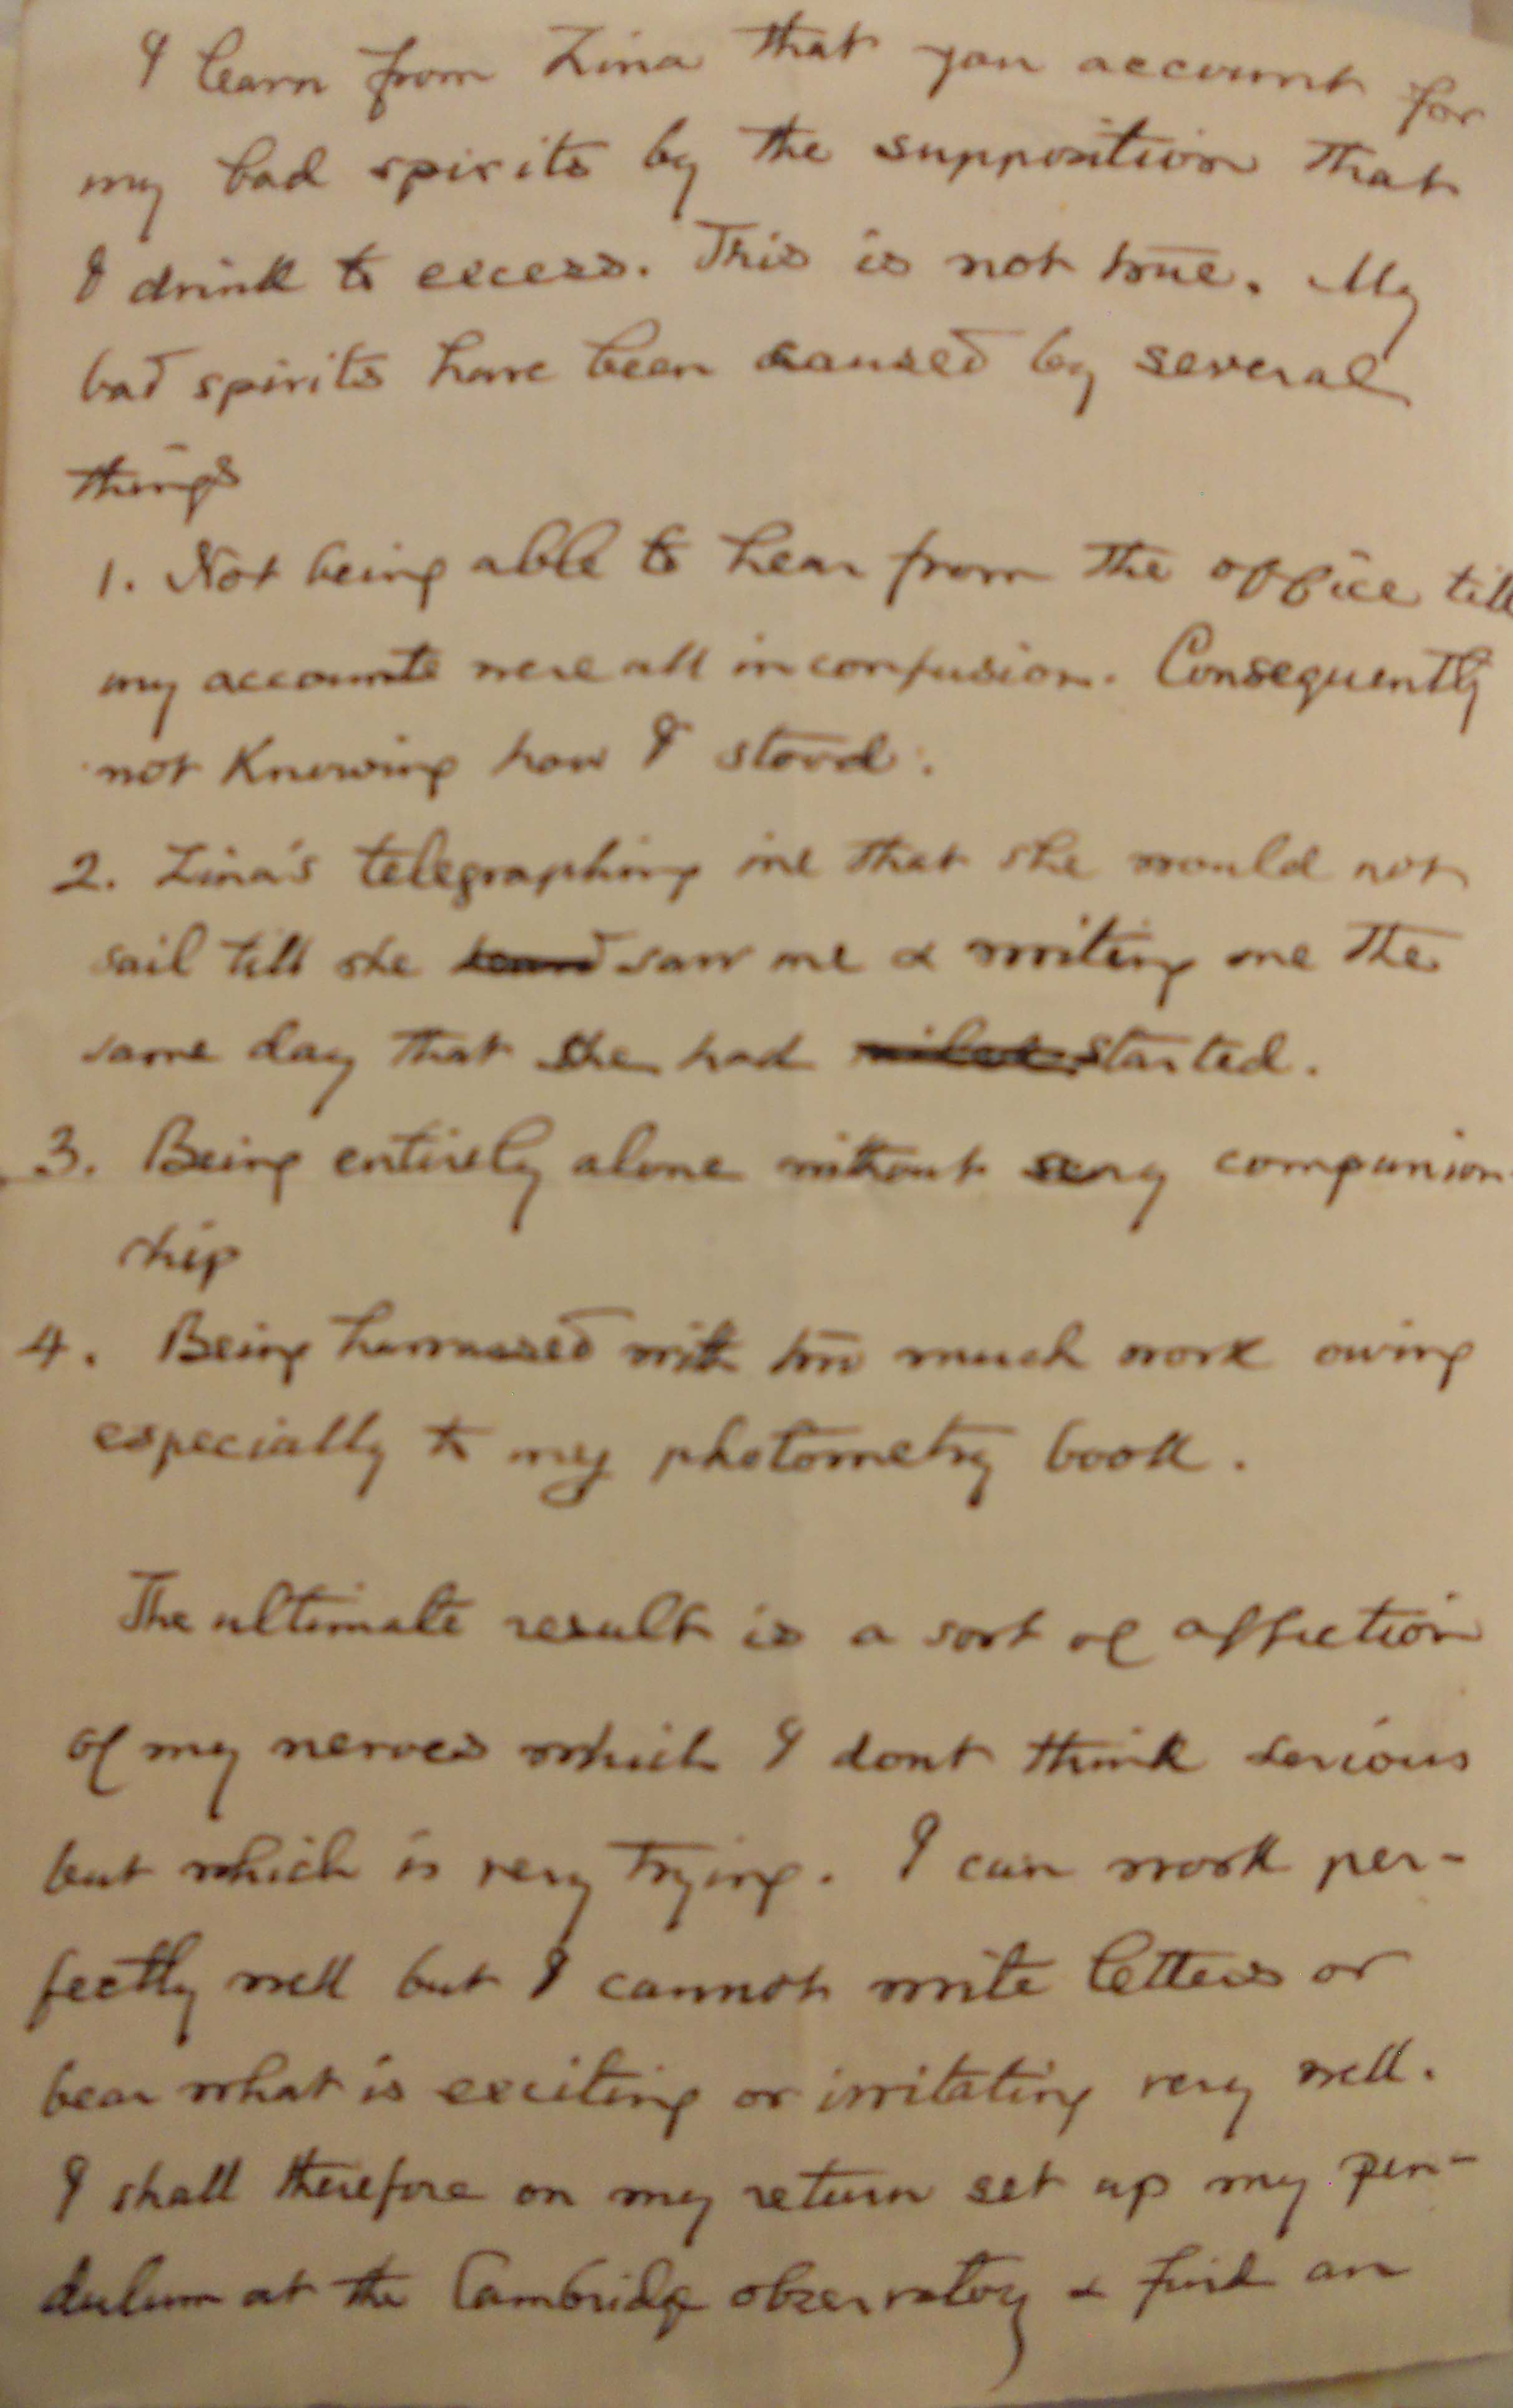 I learn from Zina that you account for
my bad spirits by the supposition that
I drink to excess. This is not true. My
bad spirits have been caused by several
things
1. Not being able to hear from the office till
my accounts were all in confusion. Consequently
not knowing how I stood.
2. Zina's telegraphing me that she would not
sail till she heard saw me & writing me the
same day that she had started.
3. Being entirely alone without any companion-
ship
4. Being harrassed with too much work owing
especially to my photometry book.
The ultimate result is a sort of affection
of my nerves which I dont think serious
but which is very trying. I can work per-
fectly well but I cannot write letters or
bear what is exciting or irritating very well.
I shall therefore on my return set up my pen-
dulum at the Cambridge observatory & find an